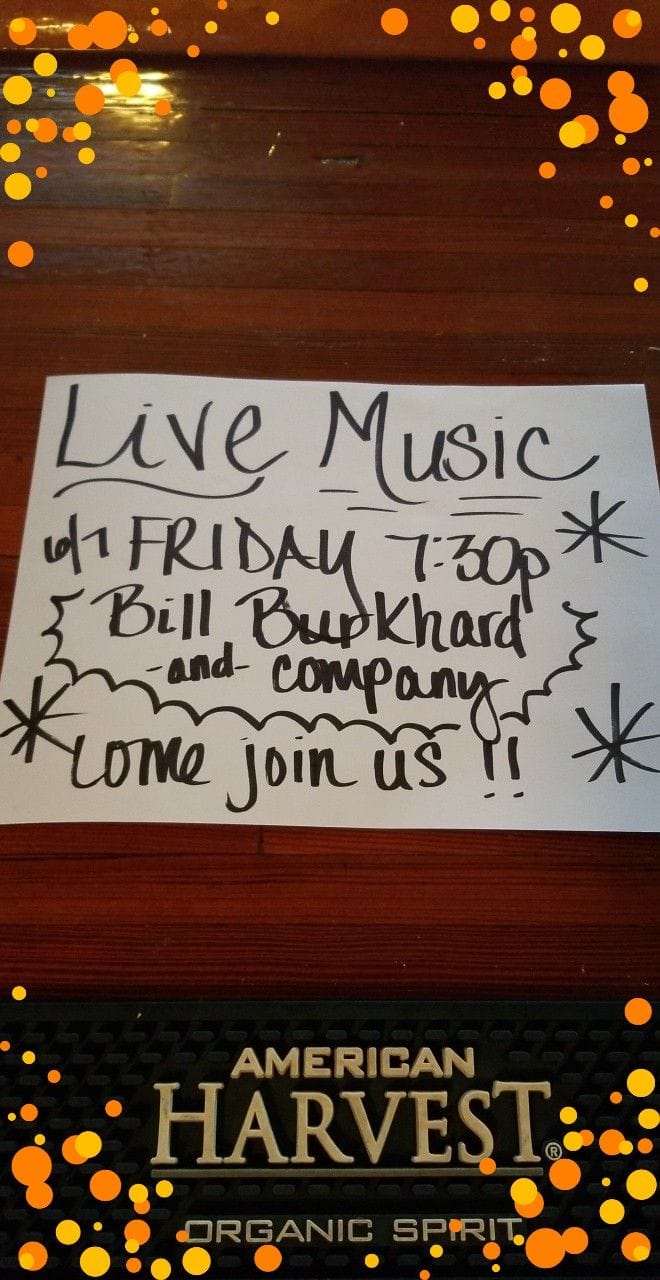 Live Music
6/7 FRIDAY 7:30p
Bill Burkhard
-and- company
Come join us !!
AMERICAN
HARVEST®
ORGANIC SPIRIT